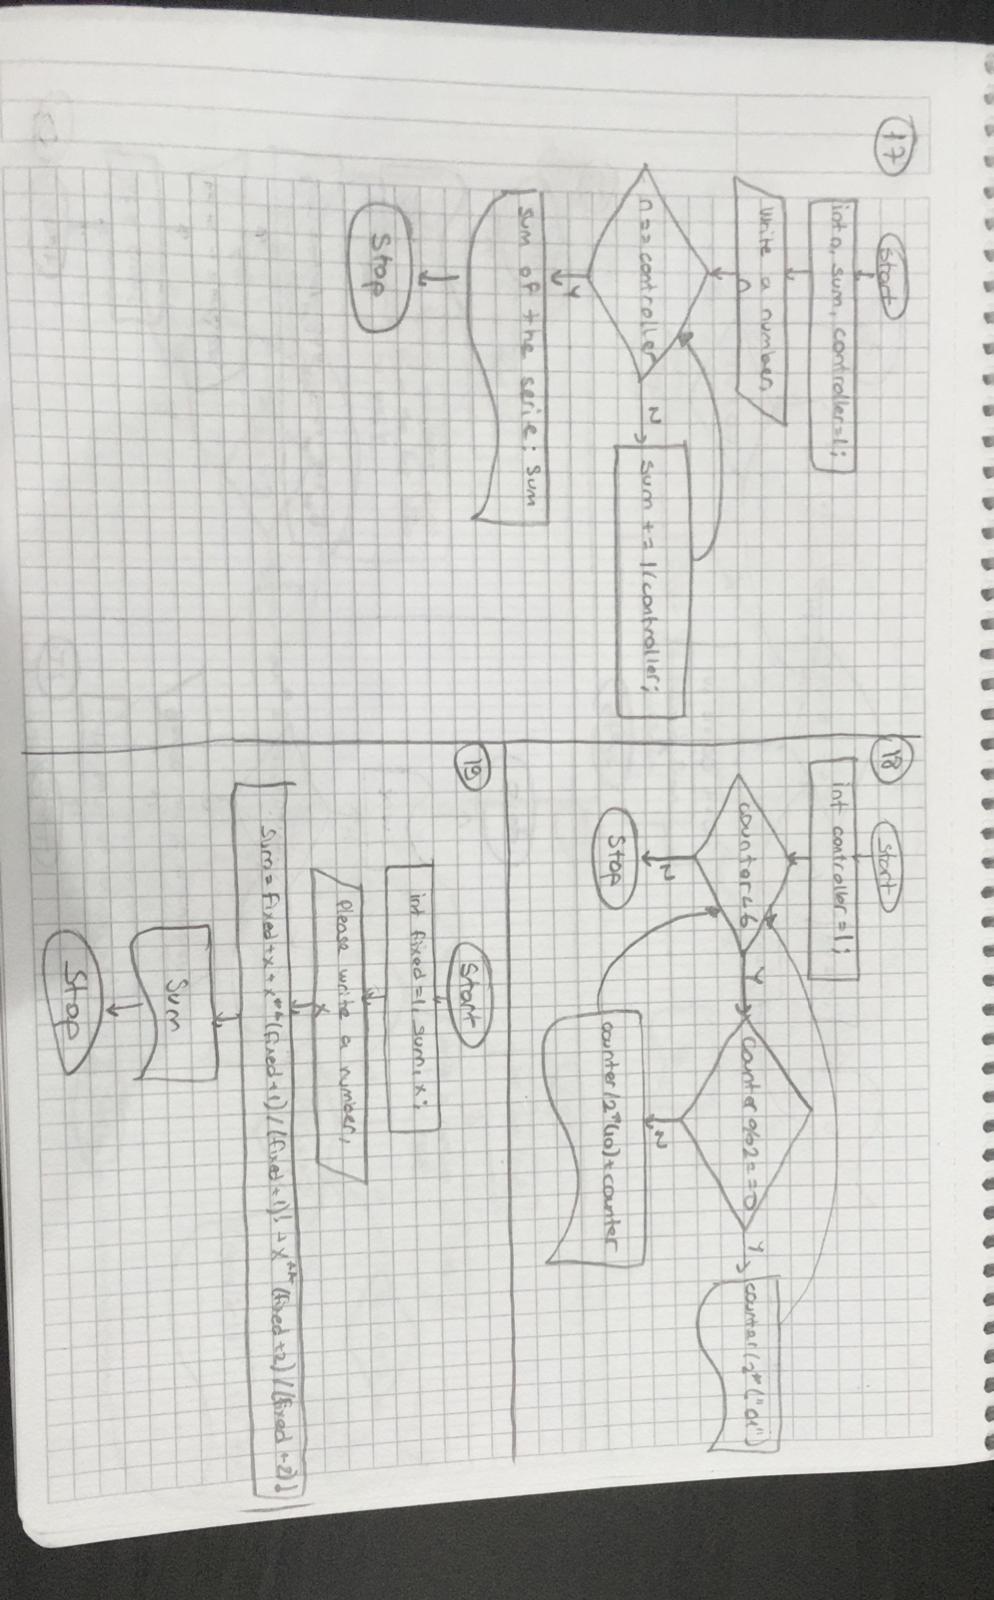 17
Start
int n, sum, controller=1;
Write a number,
n
n==controller
N
sum += 1/controller;
Y
sum of the serie: sum
Stop
18
Start
int controller=1;
counter<6
Y
counter%2==0
Y
counter/2*("01")
N
counter/2*(10)+counter
N
Stop
19
Start
int fixed=1, sum, x;
Please write a number,
x
Sum=fixed+x+x**(fixed+1)/(fixed+1)!+x**(fixed+2)/(fixed+2)!
Sum
Stop